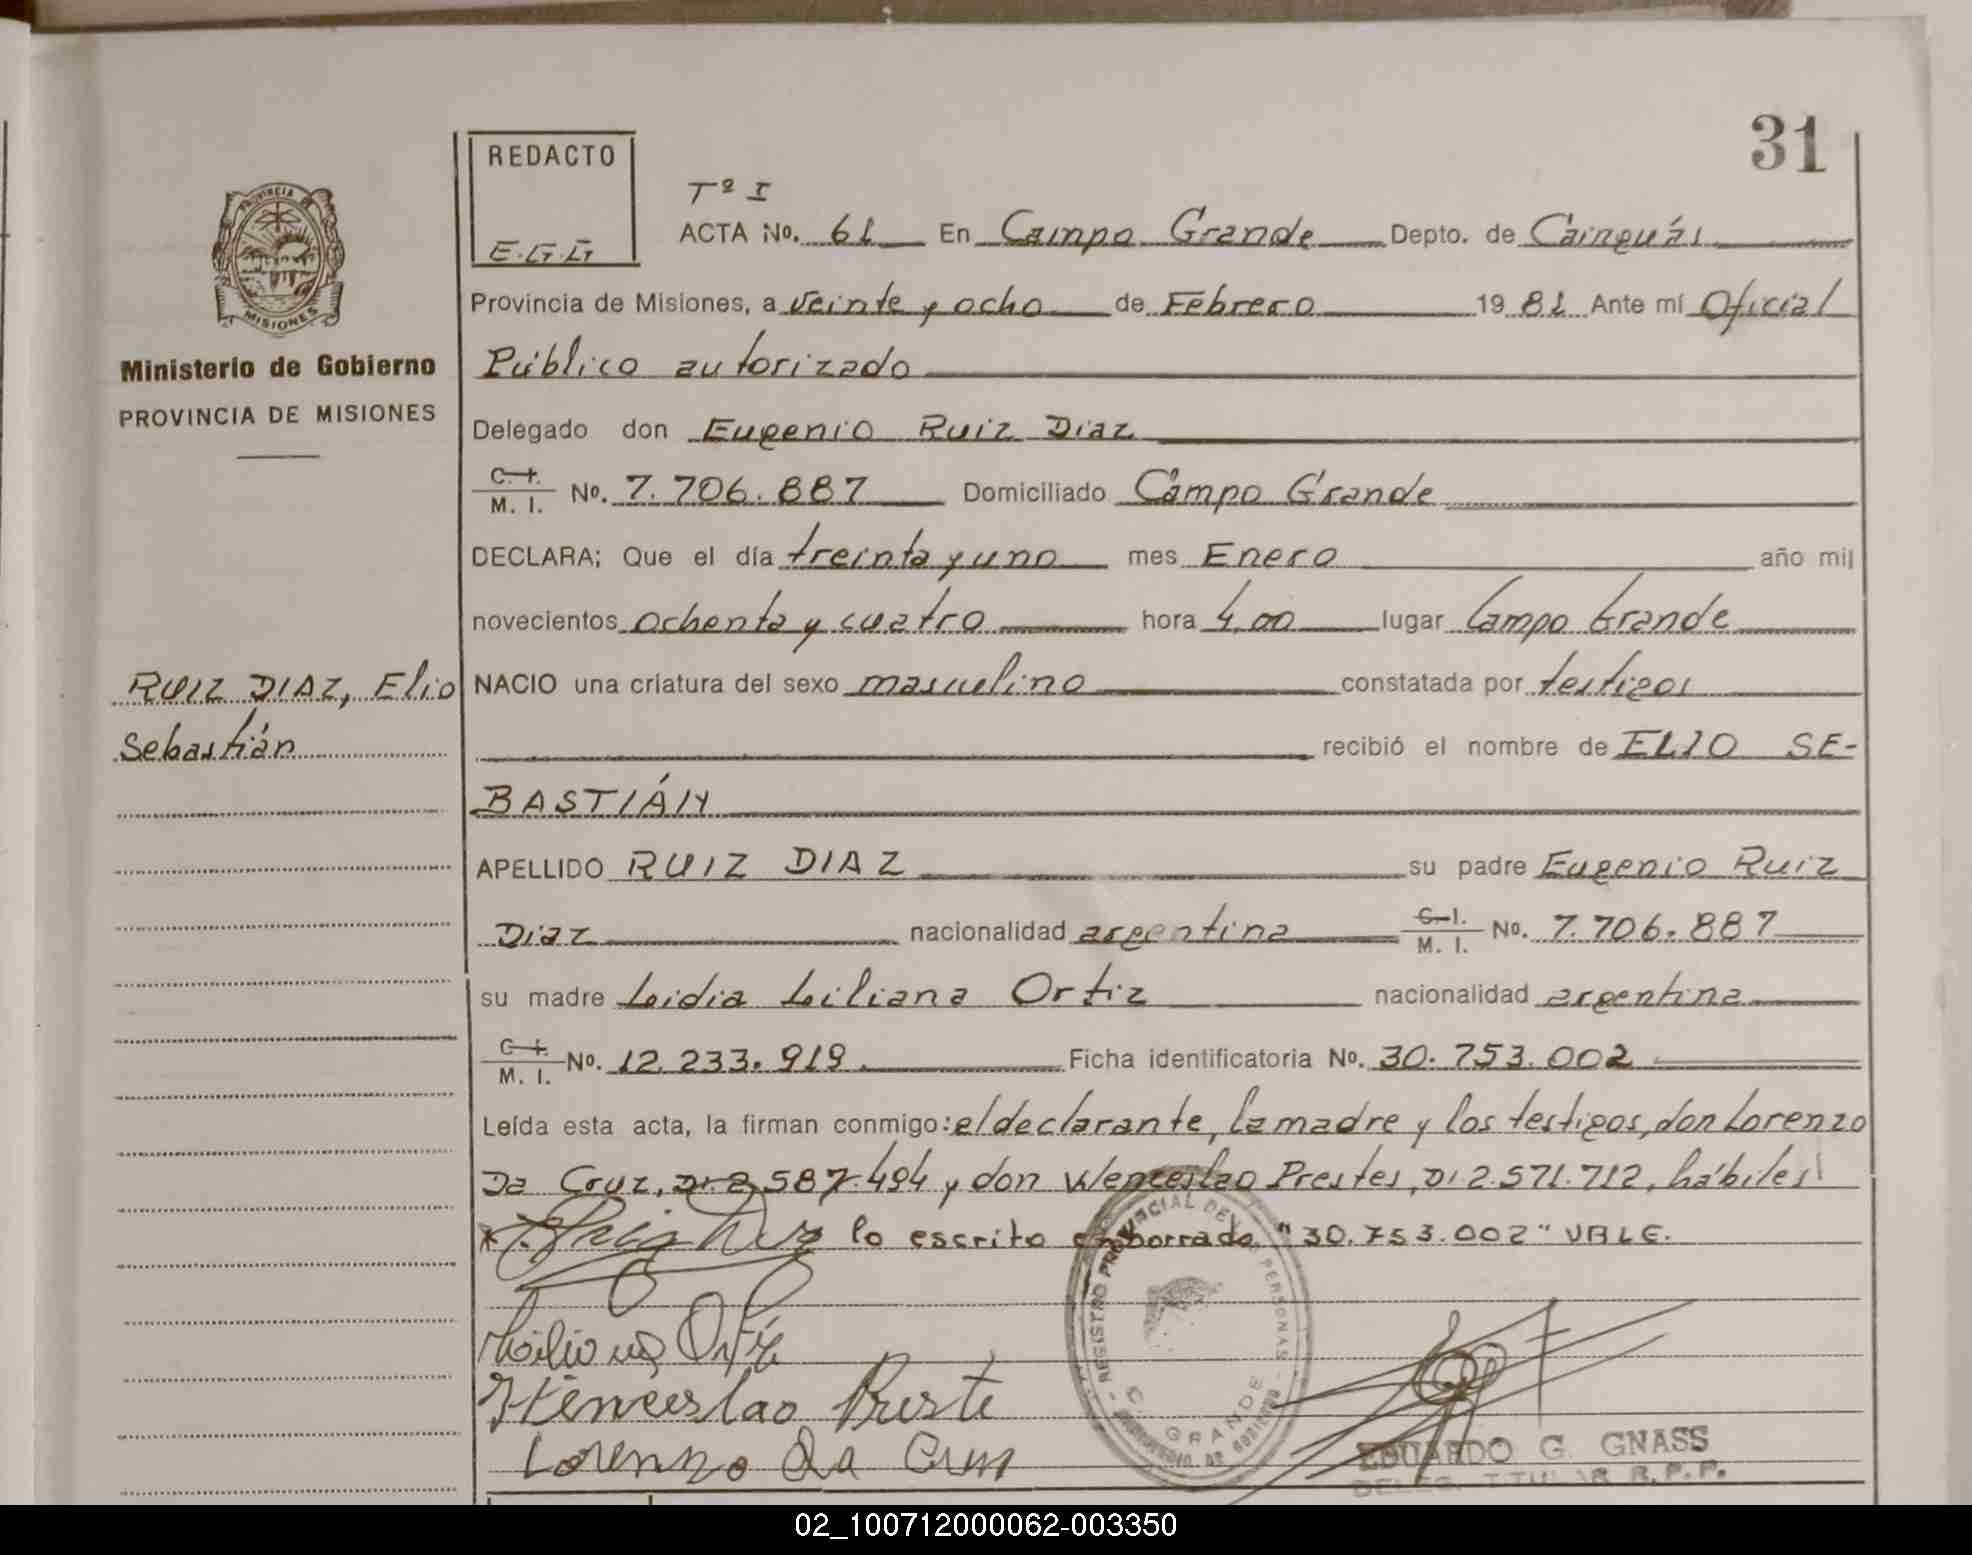 31
REDACTO
E.G.G
Tº I
ACTA Nº. 61 En Campo Grande Depto. de Cainguás
Provincia de Misiones, a veinte y ocho de Febrero 19 81 Ante mí Oficial
Público autorizado
PROVINCIA
MISIONES
Ministerio de Gobierno
PROVINCIA DE MISIONES
Delegado don Eugenio Ruiz Diaz
C. I.
M. I. Nº. 7.706.887 Domiciliado Campo Grande
DECLARA; Que el día treinta y uno mes Enero año mil
novecientos ochenta y cuatro hora 4,00 lugar Campo Grande
RUIZ DIAZ, Elio
Sebastián
NACIO una criatura del sexo masculino constatada por testigos
recibió el nombre de ELIO SE-
BASTIÁN
APELLIDO RUIZ DIAZ su padre Eugenio Ruiz
Diaz nacionalidad argentina C. I. M. I. Nº. 7.706.887
su madre Leidia Liliana Ortiz nacionalidad argentina
C. I.
M. I. Nº. 12.233.919. Ficha identificatoria Nº. 30.753.002
Leída esta acta, la firman conmigo: el declarante, la madre y los testigos, don Lorenzo
Da Cruz, 587.494 y don Wenceslao Prestes, DI 2.571.712, hábiles
lo escrito emborrado "30.753.002" VALE.
Liliana Ortiz
Wenceslao Preste
Lorenzo Da Cruz
REGISTRO PROVINCIAL DE LAS PERSONAS
C. GRANDE
MINISTERIO DE GOBIERNO
EDUARDO G. GNASS
DELEG. TITULAR R.P.P.
02_100712000062-003350